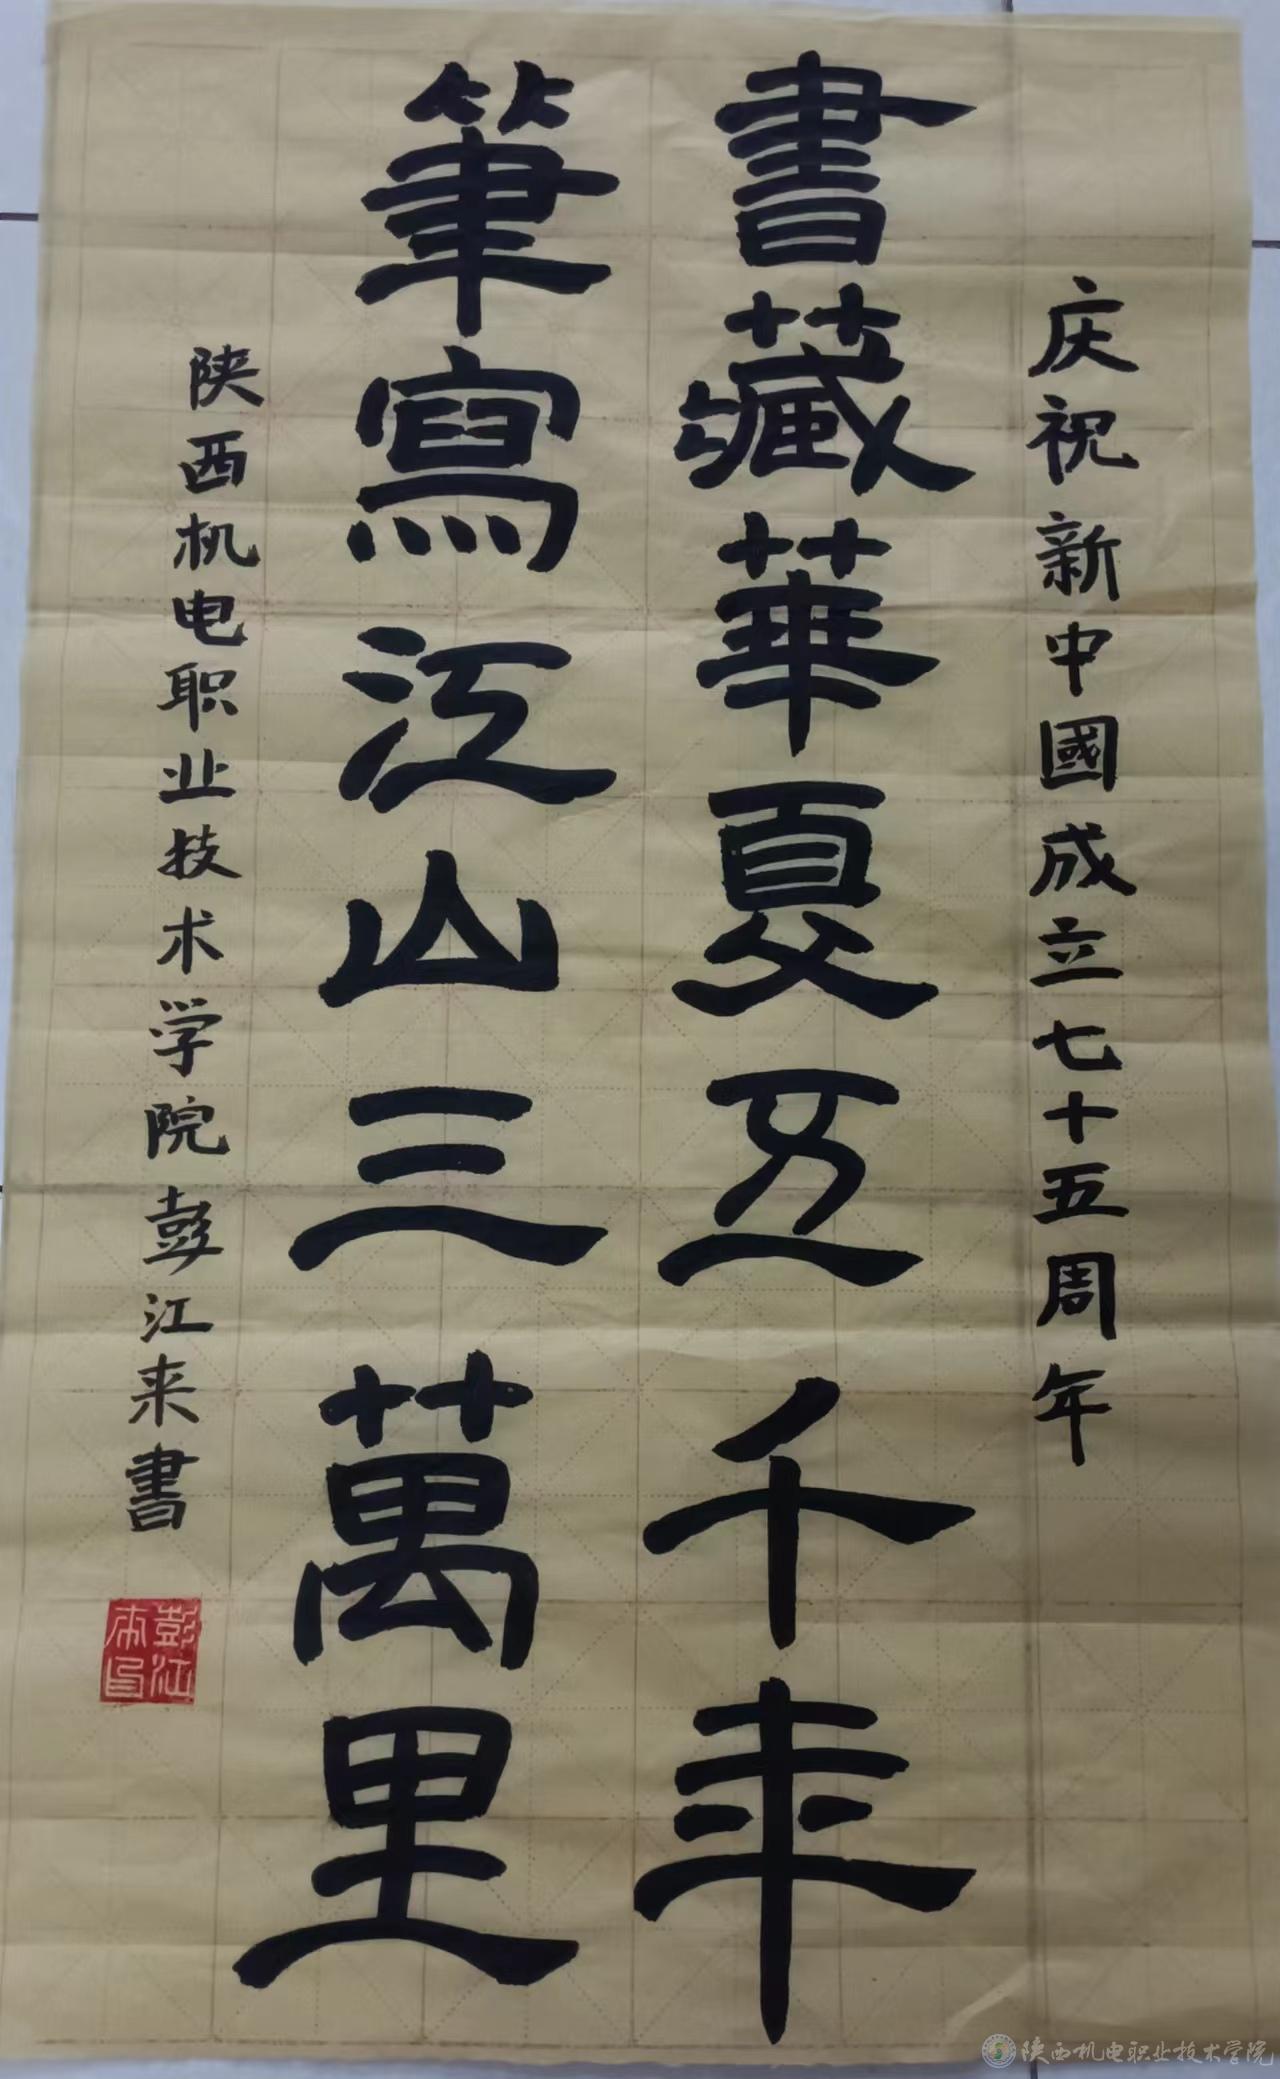 庆祝新中國成立七十五周年
書藏華夏五千年
筆寫江山三萬里
陕西机电职业技术学院彭江来書
彭江
来印
陕西机电职业技术学院